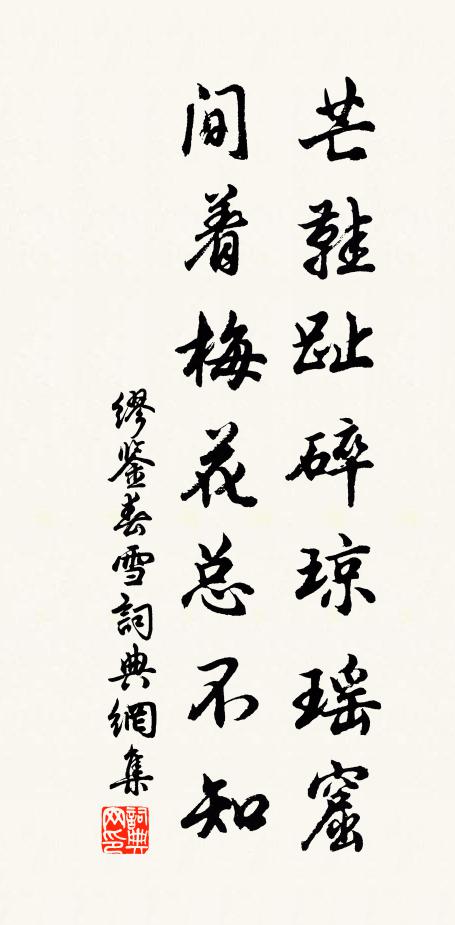 芒鞋趾碎琼瑶窟
间着梅花总不知
缪鉴春雪詞典網集
詞典网印